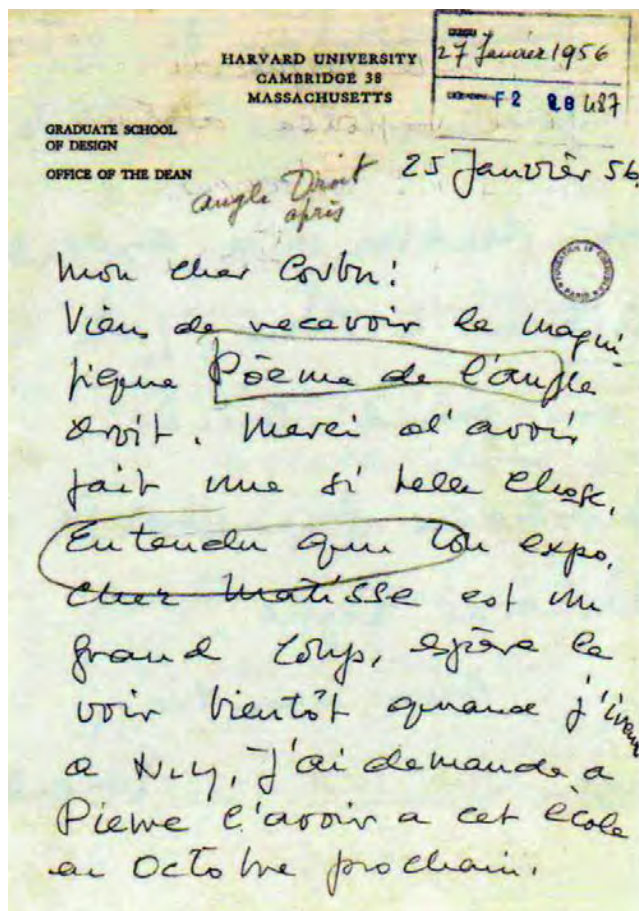 HARVARD UNIVERSITY
CAMBRIDGE 38
MASSACHUSETTS
27 Janvier 1956
F2 20 487
GRADUATE SCHOOL
OF DESIGN
OFFICE OF THE DEAN
25 Janvièr 56
angle Droit
après
FONDATION LE CORBUSIER
PARIS
Mon cher Corbu:
Viens de recevoir le magni-
fique Pòeme de l'angle
droit. Merci d'avoir
fait une si belle chose.
Entendu que ton expo.
chez Matisse est un
grand coup, espère le
voir bientôt quand j'irai
a N.Y, J'ai demande a
Pierre l'avoir a cet école
en Octobre prochain.